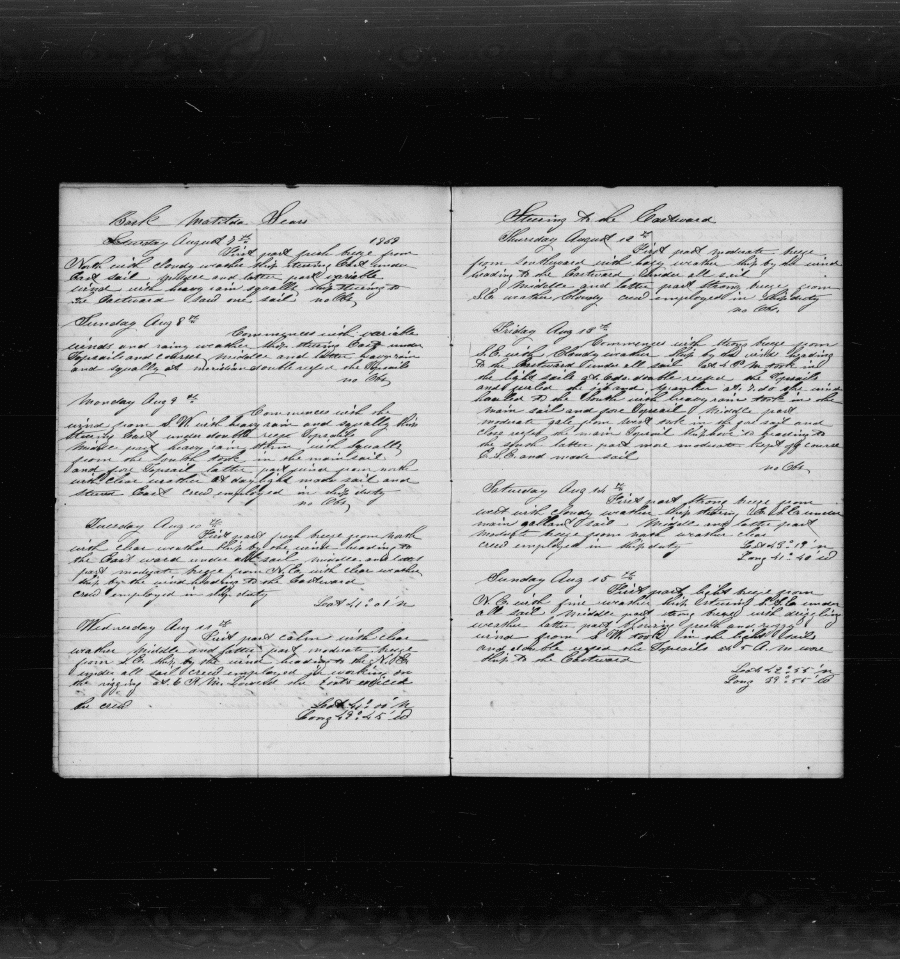 Bark Matilda Sears
Saturday August 7th 1869
First part fresh breeze from
North with cloudy weather ship steering East under
Each sail middle and latter part variable
wind with heavy rain squally ship steering to
the Eastward Saw one sail no Obs
Sunday Aug 8th
Commences with variable
winds and rainy weather ship steering East under
Topsails and courses middle and latter heavy rain
and squally at meridian double reefed the Topsails
no Obs
Monday Aug 9th
Commences with the
wind from S W with heavy rain and squally ship
steering East under double reefe Topsails
middle part heavy rain with squally
from the south took in the mainsail
and fore Topsail latter part wind from north
with clear weather at daylight made sail and
steerd East crew employed in ship duty
no Obs
Tuesday Aug 10th
First part fresh breeze from North
with clear weather ship by the wind heading to
the East ward under all sail middle and latter
part moderate breeze from N.E. with clear weather
ship by the wind heading to the Eastward
crew employed in ship duty
Lat 41° 01' N
Wednesday Aug 11th
First part calm with clear
weather middle and latter part moderate breeze
from S.E. ship by the wind heading to the N.E.
under all sail crew employed in working on
the rigging at 6 A.M. Lowerd the boats
the crew Lat 41° 00' N
Long 43° 45' W
Steering to the Eastward
Thursday August 12th
First part moderate breeze
from Southward with hazy weather ship by the wind
heading to the Eastward under all sail
Middle and latter part Strong breeze from
S.E. weather Cloudy crew employed in Ship duty
no Obs.
Friday Aug 13th
Commences with strong breeze from
S.E. with Cloudy weather Ship by the wind heading
to the Eastward under all sail at 4 P.M. took in
the light sails at 6 double reefed the Topsails
and furled the jib and spanker at 7.30 the wind
hauled to the South with heavy rain took in the
main sail and fore Topsail Middle part
moderate gale from west took in the sail and
close reefd the main Topsail Ship heading to
the South latter part more moderate kept off course
E.S.E and made sail
no Obs,
Saturday Aug 14th
First part Strong breeze from
west with cloudy weather ship steering E.S.E under
main gallant sail Middle and latter part
moderate breeze from north weather clear
crew employed in ship duty Lat 43° 19' N
Long 41° 40' W
Sunday Aug 15th
First part light breeze from
N.E. with fine weather ship steering E.S.E under
all sail Middle part strong breeze with drizzling
weather latter part blowing fresh and
wind from S W. took in the light sails
and double reefed the Topsails at 5 A.M wore
ship to the Eastward
Lat 42° 55' N
Long 39° 55' W